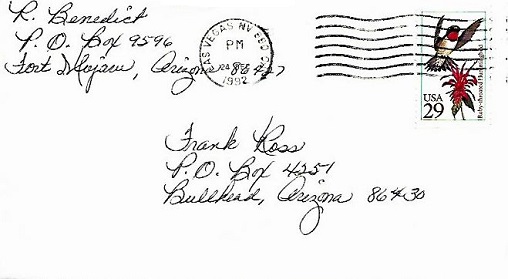 R. Benedict
P. O. Box 9596
Fort Mojave, Arizona 86427
LAS VEGAS NV
PM
24
1992
USA
29
Ruby-throated Hummingbird
Frank Ross
P. O. Box 4251
Bullhead, Arizona 86430